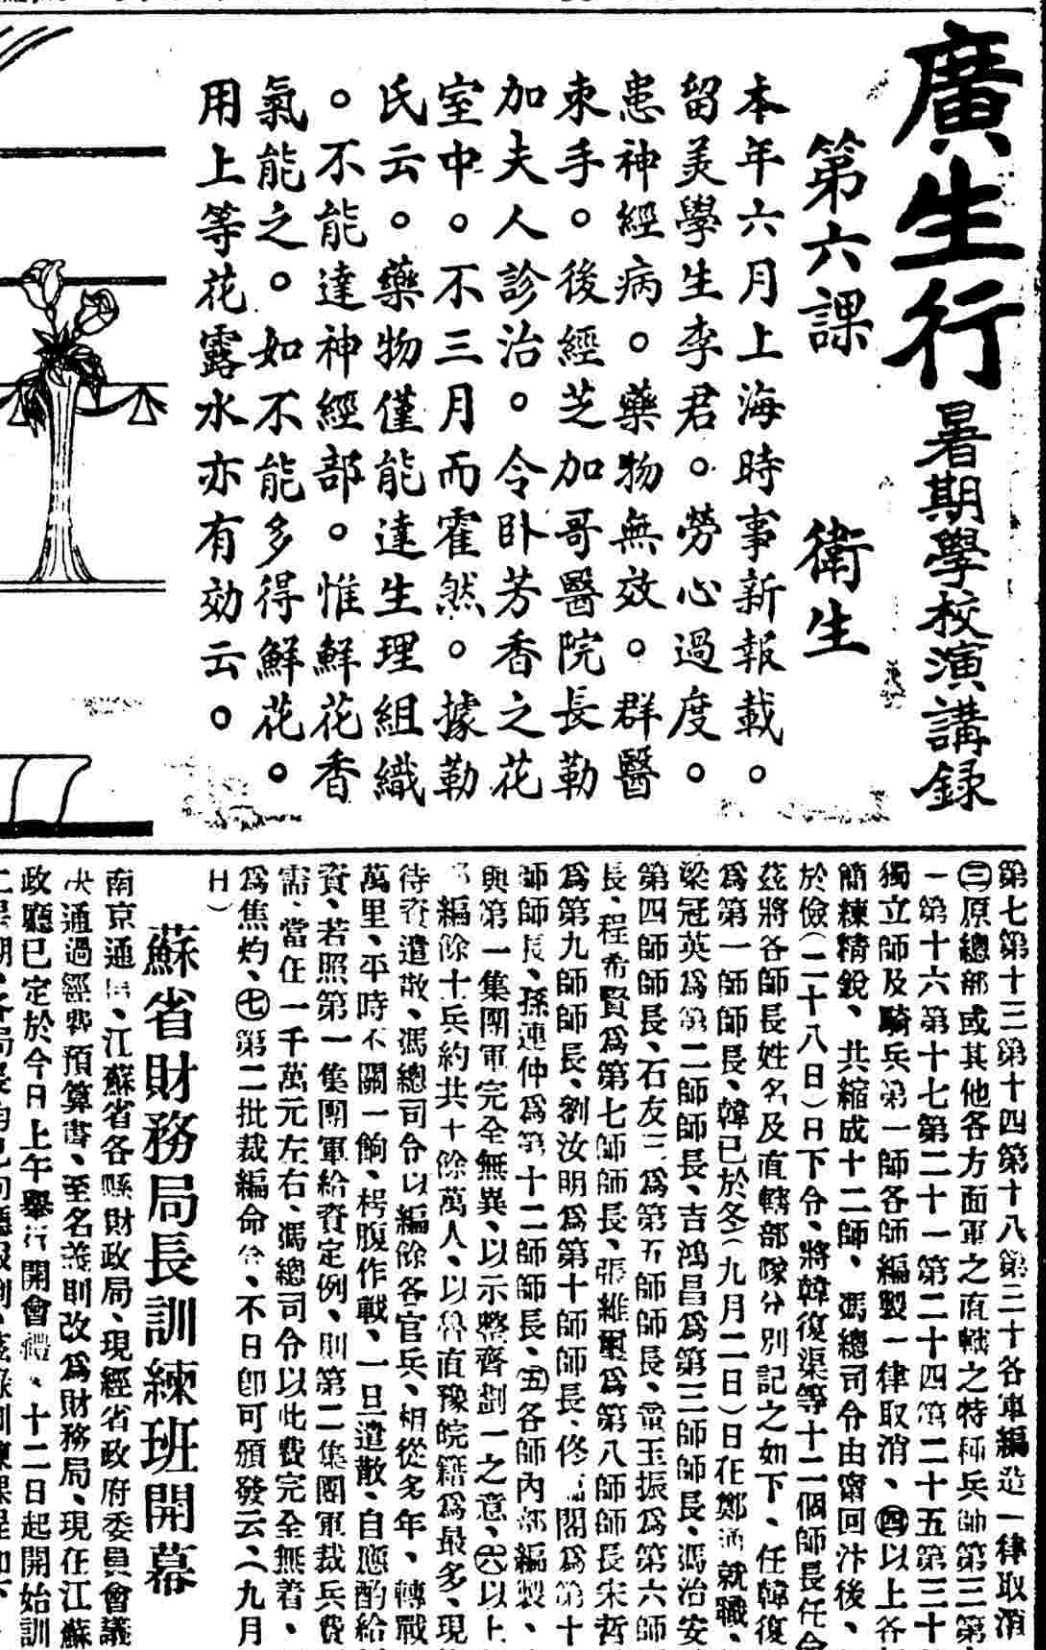 廣生行暑期學校演講録
第六課 衛生
本年六月上海時事新報載。
留美學生李君。勞心過度。
患神經病。藥物無效。群醫
束手。後經芝加哥醫院長勒
加夫人診治。令卧芳香之花
室中。不三月而霍然。據勒
氏云。藥物僅能達生理組織
。不能達神經部。惟鮮花香
氣能之。如不能多得鮮花。
用上等花露水亦有効云。
第七第十三第十四第十八第三十各軍編造一律取消
㊂原總部或其他各方面軍之直轄之特種兵師第三第
一第十六第十七第二十一第二十四第二十五第三十
獨立師及騎兵第一師各師編製一律取消、㊃以上各
簡練精銳、共縮成十二師、馮總司令由甯回汴後、
於儉(二十八日)日下令、將韓復渠等十二個師長任命
茲將各師長姓名及直轄部隊分別記之如下、任韓復
為第一師師長、韓已於冬(九月二日)日在鄭通就職、
梁冠英為第二師師長、吉鴻昌為第三師師長、馮治安
第四師師長、石友三為第五師師長、童玉振為第六師
長、程希賢為第七師師長、張維璽為第八師師長宋哲
為第九師師長、劉汝明為第十師師長、佟 閣為第十
師師長、孫連仲為第十二師師長、㊄各師內部編製、
與第一集團軍完全無異、以示整齊劃一之意、㊅以上
編餘士兵約共十餘萬人、以魯直豫皖籍為最多、現
待資遣散、馮總司令以編餘各官兵、相從多年、轉戰
萬里、平時不關一餉、枵腹作戰、一旦遣散、自應酌給
資、若照第一集團軍給資定例、則第二集團軍裁兵費
需、當在一千萬元左右、馮總司令以此費完全無着、
為焦灼、㊆第二批裁編命令、不日即可頒發云、(九月
日)
蘇省財務局長訓練班開幕
南京通 、江蘇省各縣財政局、現經省政府委員會議
決通過經費預算書、至名義則改為財務局、現在江蘇
政廳已定於今日上午舉行開會禮、十二日起開始訓